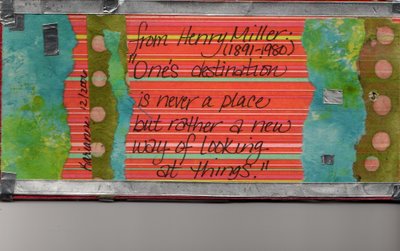 from Henry Miller:
(1891-1980)
"One's destination
is never a place
but rather a new
way of looking
at things."